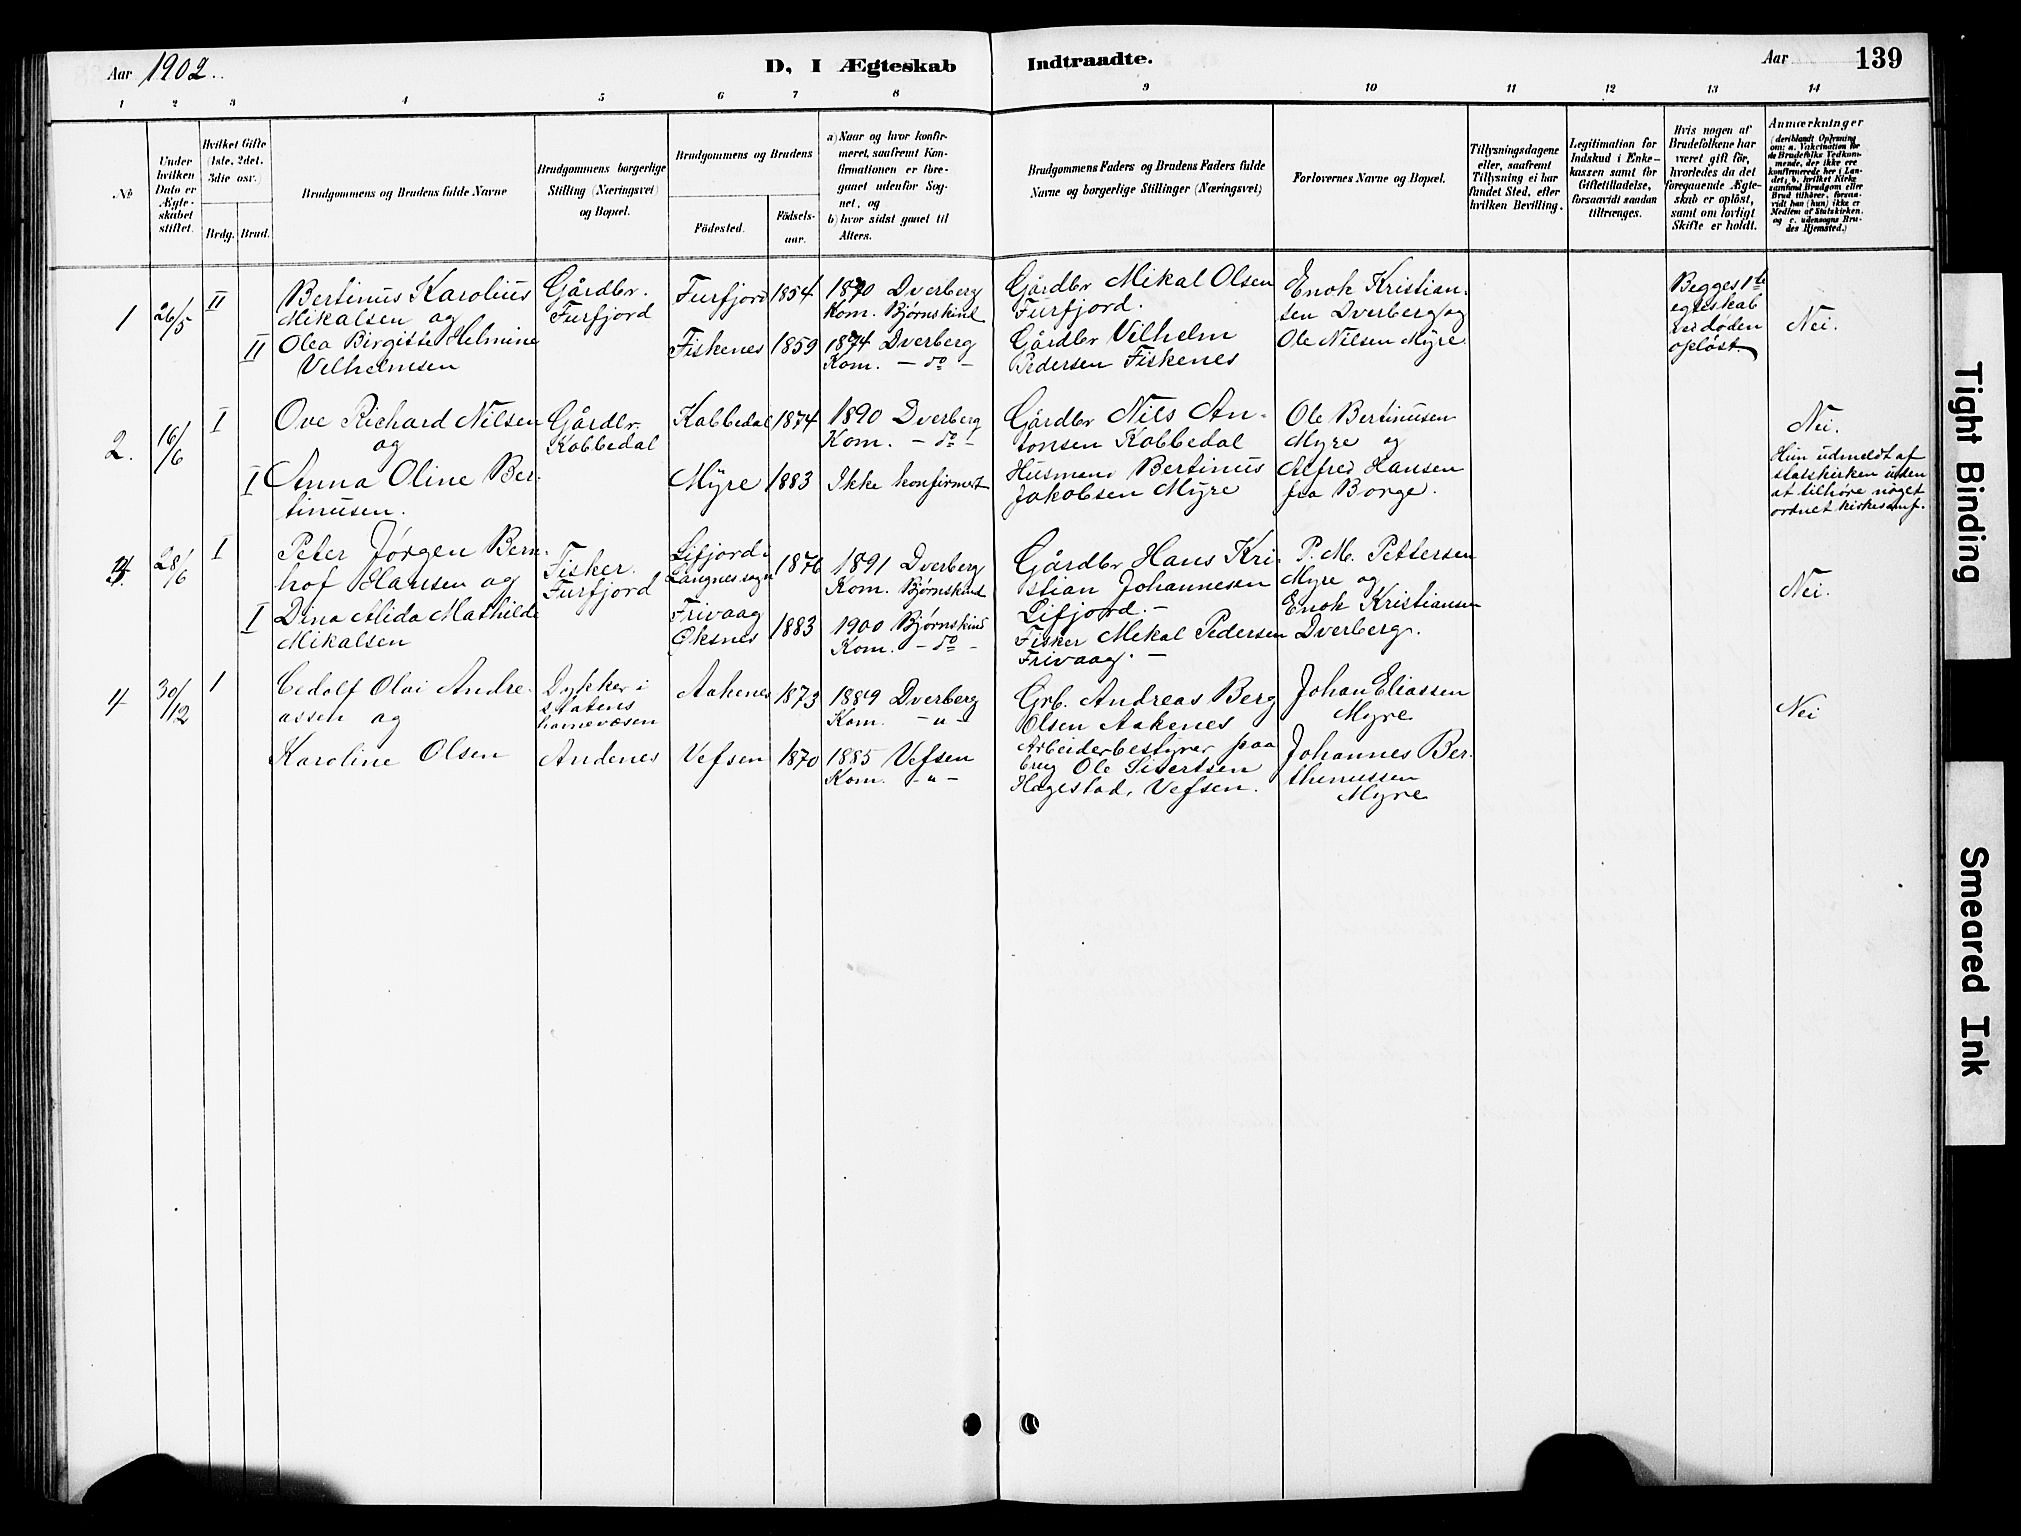 Aar 1902.
D, I Ægteskab Indtraadte.
Aar
139
1 2 3 4 5 6 7 8 9 10 11 12 13 14
No
Under hvilken Dato er Ægteskabet stiftet.
Hvilket Gifte (1ste, 2det, 3die osv.)
Brdg. Brud.
Brudgommens og Brudens fulde Navne
Brudgommens borgerlige Stilling (Næringsvei) og Bopæl.
Brudgommens og Brudens
Födested.
Födselsaar.
a) Naar og hvor konfirmeret, saafremt Konfirmationen er foregaaet udenfor Sognet, og
b) hvor sidst gaaet til Alters.
Brudgommens Faders og Brudens Faders fulde Navne og borgerlige Stillinger (Næringsvei)
Forlovernes Navne og Bopæl.
Tillysningsdagene eller, saafremt Tillysning ei har fundet Sted, efter hvilken Bevilling.
Legitimation for Indskud i Enkekassen samt for Giftetilladelse, forsaavidt saadan tiltrænges.
Hvis nogen af Brudefolkene har været gift för, hvorledes da det foregaaende Ægteskab er oplöst, samt om lovligt Skifte er holdt.
Anmærkninger (deriblandt Oplysning om: a. Vakcination for de Brudefolks Vedkommende, der ikke ere konfirmerede her i Landet; b. hvilket Kirkesamfund Brudgom eller Brud tilhörer, forsaavidt han (hun) ikke er Medlem af Statskirken, og c. udensogns Brudes Hjemsted.)
1 26/5 II
Bertinus Karolius
Mikalsen og
II Olea Birgitte Helmine
Vilhelmsen
Gårdbr.
Furfjord
Furfjord 1854
Fiskenes 1859
1870 Dverberg
Kom. Bjørnskind
1874 Dverberg
Kom. – do –
Gårdbr Mikal Olsen
Furfjord.
Gårdbr Vilhelm
Pedersen Fiskenes
Enok Kristian-
sen Dverberg og
Ole Nilsen Myre
Begges 1ste
egteskab
ved døden
opløst.
Nei.
2. 16/6 I
Ove Richard Nilsen
og
I Anna Oline Ber-
tinusen.
Gårdbr.
Kobbedal
Kobbedal 1874
Myre 1883
1890 Dverberg
Kom. – do –
Ikke konfirmert
Gårdbr Nils An-
tonsen Kobbedal
Husmand Bertinus
Jakobsen Myre
Ole Bertinusen
Myre og
Alfred Hansen
fra Borge.
Nei.
Hun udmeldt af
statskirken uden
at tilhøre noget
ordnet kirkesamf.
3. 28/6 I
Peter Jørgen Bern-
hof Hansen og
I Dina Alida Mathilde
Mikalsen
Fisker.
Furfjord
Lifjord i
Langnes sogn 1876
Frivaag
Øksnes 1883
1891 Dverberg
Kom. Bjørnskind
1900 Bjørnskind
Kom. – do –
Gårdbr Hans Kri-
stian Johannesen
Lifjord. –
Fisker Mikal Pedersen
Frivaag. –
P. M. Pettersen
Myre og
Enok Kristiansen
Dverberg.
Nei.
4 30/12 1
Olai Andre-
assen og
Karoline Olsen
Dykker i
statens
havnevæsen
Andenes
Aakenes 1873
Vefsen 1870
1889 Dverberg
Kom. – " –
1885 Vefsen
Kom. – " –
Grb. Andreas Berg
Olsen Aakenes
Arbeiderbestyrer paa
brug Ole Sivertsen
Hagestad, Vefsen.
Johan Eliassen
Myre
Johannes Ber-
thinussen
Myre
Nei
Tight Binding
Smeared Ink